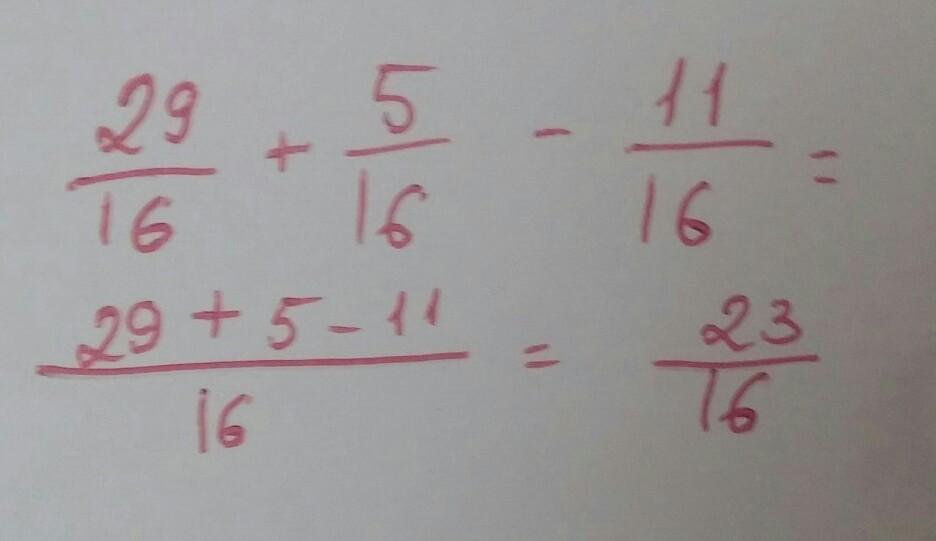 29/16 + 5/16 - 11/16 =
29 + 5 - 11/16 = 23/16